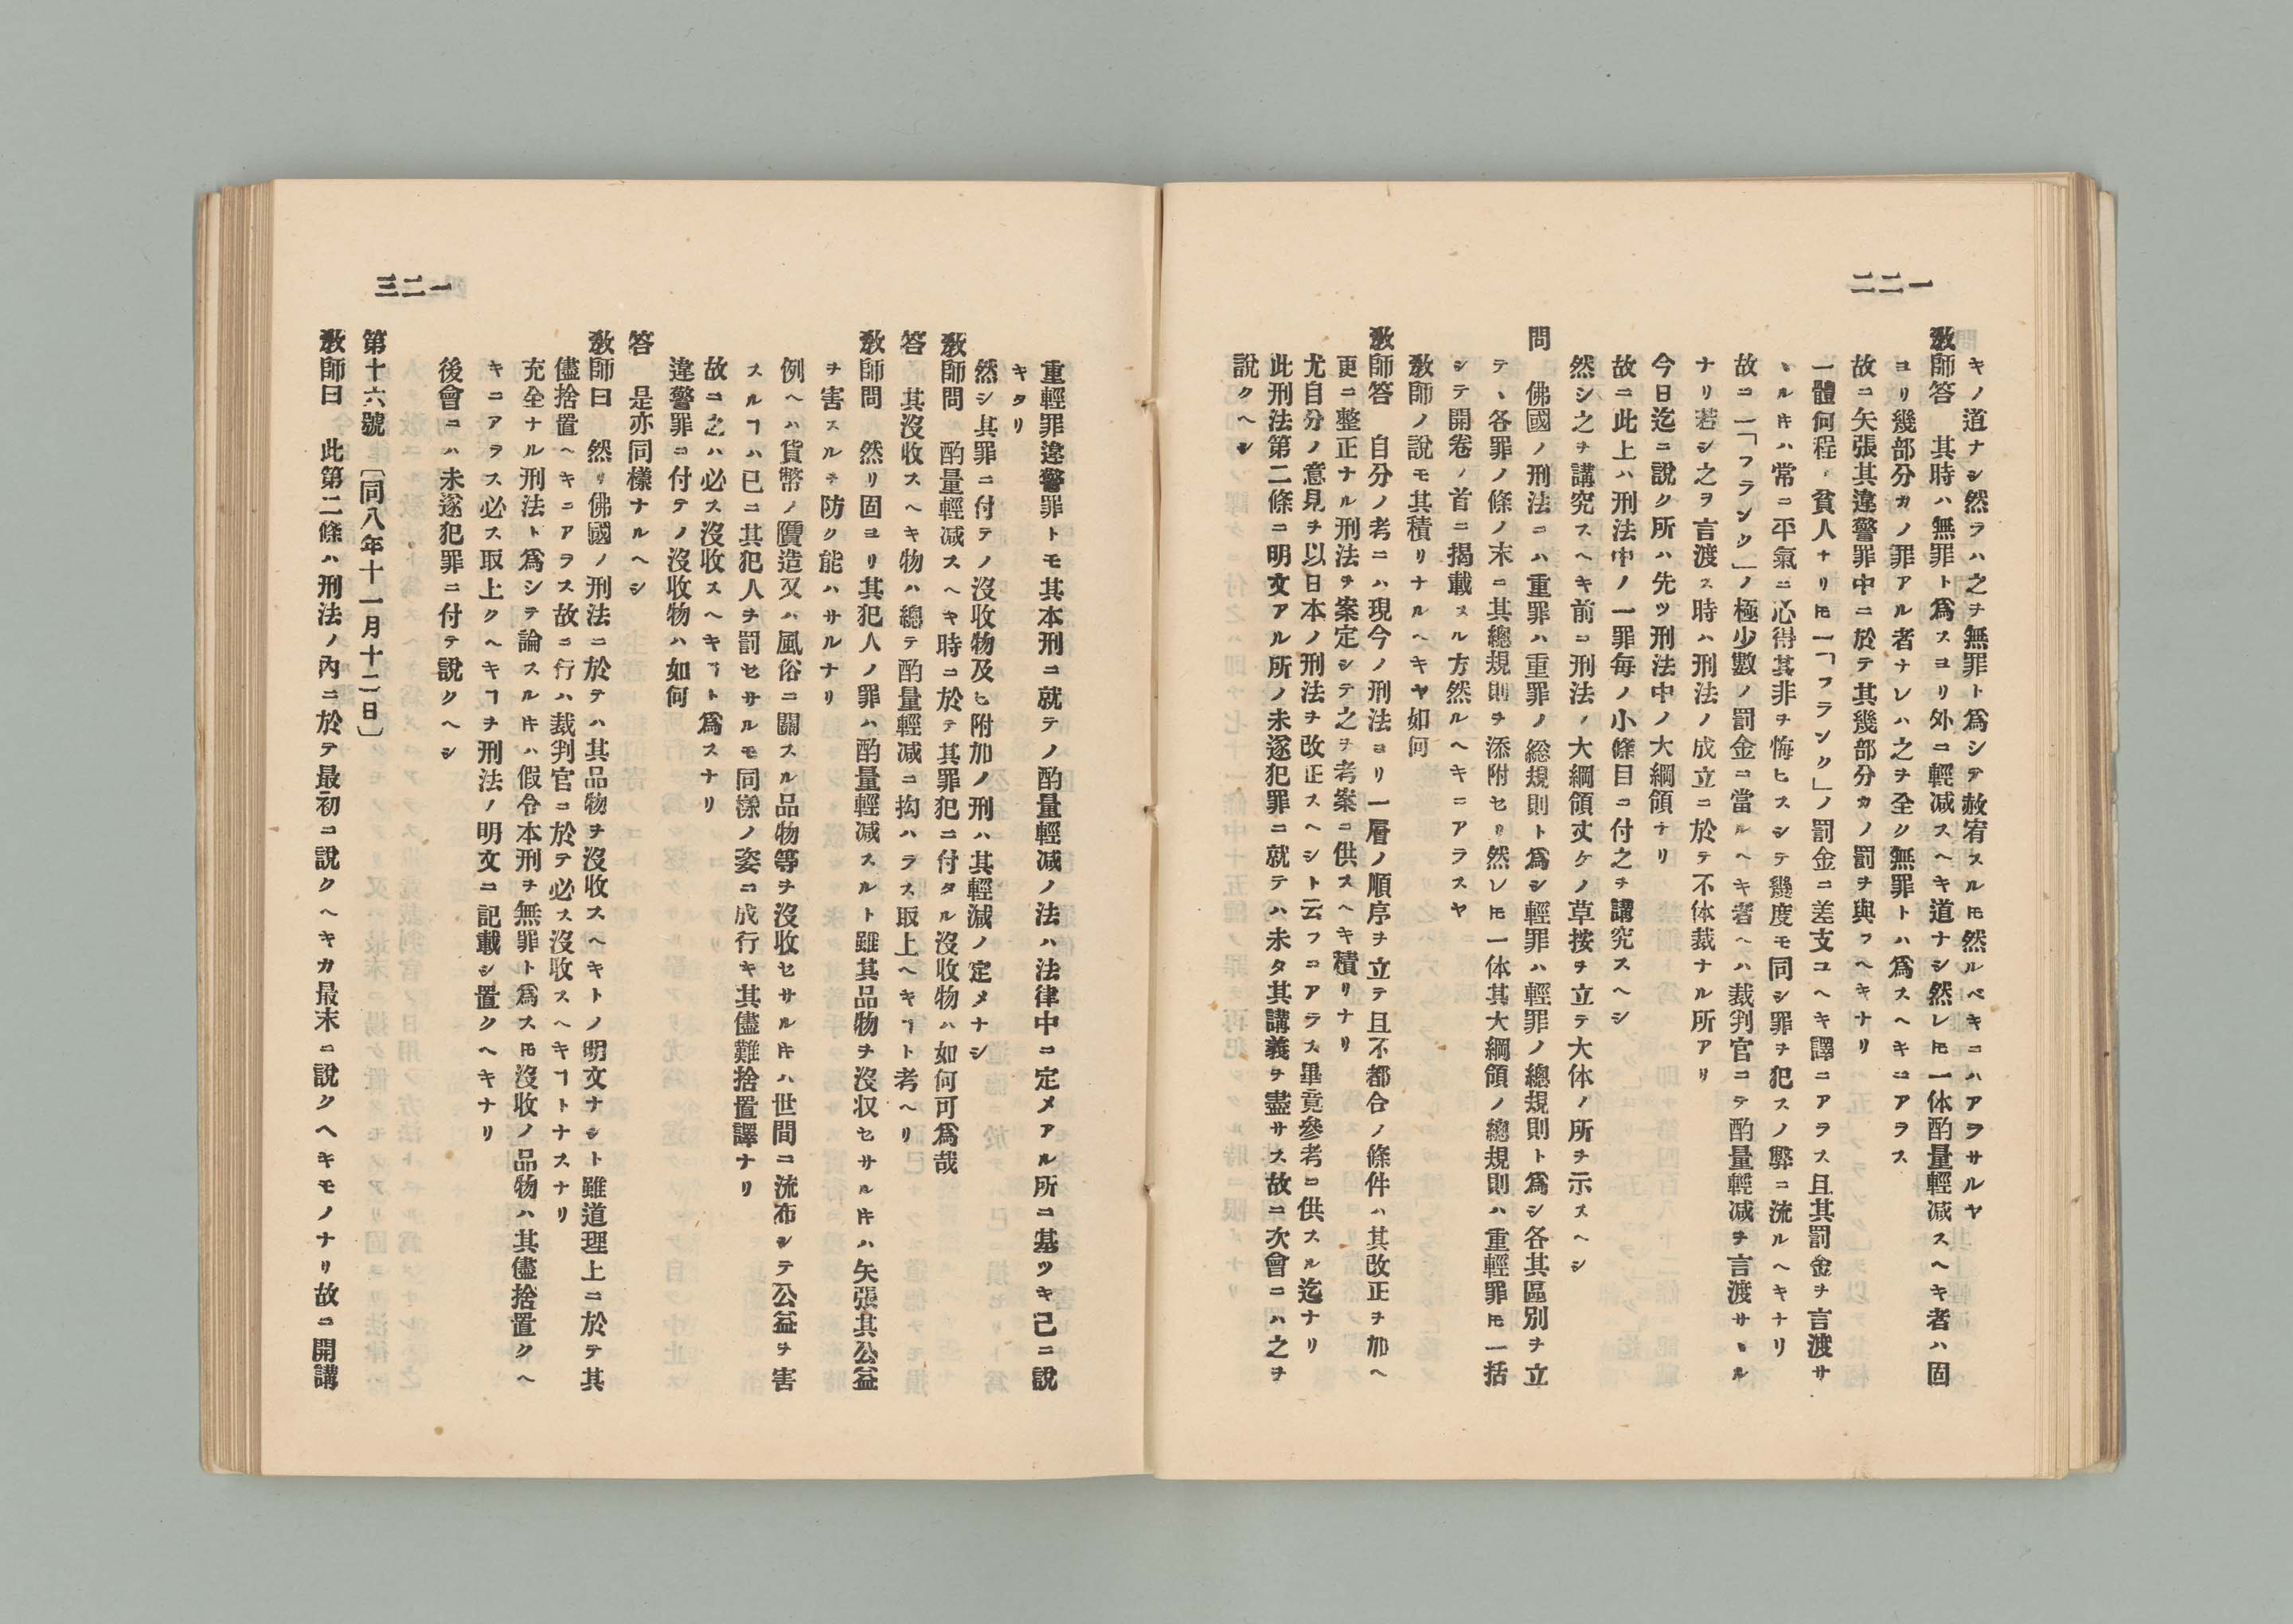 一二二
キノ道ナシ然ラハ之ヲ無罪ト爲シテ赦宥スルㇳモ然ルベキニハアラサルヤ
敎師答　其時ハ無罪ト爲スヨリ外ニ輕减スヘキ道ナシ然レㇳモ一体酌量輕减スヘキ者ハ固
ヨリ幾部分カノ罪アル者ナレハ之ヲ全ク無罪トハ爲スヘキニアラス
故ニ矢張其違警罪中ニ於テ其幾部分カノ罰ヲ與フヘキナリ
一體何程、貧人ナリㇳモ一「フランク」ノ罰金ニ差支ユヘキ譯ニアラス且其罰金ヲ言渡サ
ヽルㇳキハ常ニ平氣ニ心得其非ヲ悔ヒスシテ幾度モ同シ罪ヲ犯スノ弊ニ流ルヘキナリ
故ニ一「フランク」ノ極少數ノ罰金ニ當ルヘキ者ヘハ裁判官ニテ酌量輕减ヲ言渡サヽル
ナリ若シ之ヲ言渡ス時ハ刑法ノ成立ニ於テ不体裁ナル所アリ
今日迄ニ說ク所ハ先ツ刑法中ノ大綱領ナリ
故ニ此上ハ刑法中ノ一罪每ノ小條目ニ付之ヲ講究スヘシ
然シ之ヲ講究スヘキ前ニ刑法ノ大綱領丈ケノ草按ヲ立テ大体ノ所ヲ示スヘシ
問　佛國ノ刑法ニハ重罪ハ重罪ノ総規則ト爲シ輕罪ハ輕罪ノ總規則ト爲シ各其區別ヲ立
テヽ各罪ノ條ノ末ニ其總規則ヲ添附セリ然レㇳモ一体其大綱領ノ總規則ハ重輕罪ㇳモ一括
シテ開卷ノ首ニ揭載スル方然ルヘキニアラスヤ
敎師ノ說モ其積リナルヘキヤ如何
敎師答　自分ノ考ニハ現今ノ刑法ヨリ一層ノ順序ヲ立テ且不都合ノ條件ハ其改正ヲ加ヘ
更ニ整正ナル刑法ヲ案定シテ之ヲ考案ニ供スヘキ積リナリ
尤自分ノ意見ヲ以日本ノ刑法ヲ改正スヘシト云フニアラス畢竟參考ニ供スル迄ナリ
此刑法第二條ニ明文アル所ノ未遂犯罪ニ就テハ未タ其講義ヲ盡サス故ニ次會ニハ之ヲ
說クヘシ
一二三
重輕罪違警罪トモ其本刑ニ就テノ酌量輕减ノ法ハ法律中ニ定メアル所ニ基ツキ已ニ說
キタリ
然シ其罪ニ付テノ沒收物及ヒ附加ノ刑ハ其輕減ノ定メナシ
敎師問　酌量輕减スヘキ時ニ於テ其罪犯ニ付タル沒收物ハ如何可爲哉
答　其沒收スヘキ物ハ總テ酌量輕减ニ拘ハラス取上ヘキヿト考ヘリ
敎師問　然リ固ヨリ其犯人ノ罪ハ酌量輕减スルト雖其品物ヲ沒収セサルㇳキハ矢張其公益
ヲ害スルヲ防ク能ハサルナリ
例ヘハ貨幣ノ贋造又ハ風俗ニ關スル品物等ヲ沒收セサルㇳキハ世間ニ流布シテ公益ヲ害
スルヿハ已ニ其犯人ヲ罰セサルモ同樣ノ姿ニ成行キ其儘難捨置譯ナリ
故ニ之ハ必ス沒收スヘキヿト爲スナリ
違警罪ニ付テノ沒收物ハ如何
答　是亦同樣ナルヘシ
敎師曰　然リ佛國ノ刑法ニ於テハ其品物ヲ沒收スヘキトノ明文ナシト雖道理上ニ於テ其
儘捨置ヘキニアラス故ニ行ハ裁判官ニ於テ必ス沒收スヘキヿトナスナリ
充全ナル刑法ト爲シテ論スルㇳキハ假令本刑ヲ無罪ト爲スㇳモ沒收ノ品物ハ其儘捨置クヘ
キニアラス必ス取上クヘキヿヲ刑法ノ明文ニ記載シ置クヘキナリ
後會ニハ未遂犯罪ニ付テ說クヘシ
第十六號　〔同八年十一月十二日〕
敎師曰　此第二條ハ刑法ノ內ニ於テ最初ニ說クヘキカ最末ニ說クヘキモノナリ故ニ開講